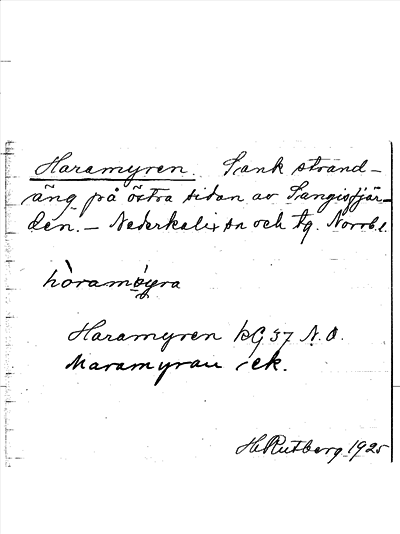 Haramyren. Sank strand-
äng på östra sidan av Sangisfjär-
den. - Nederkalix sn och tg. Norrb. l.
hòramǿyra
Haramyren kG 37 N.O.
Maramyran ek.
H Rutberg 1925